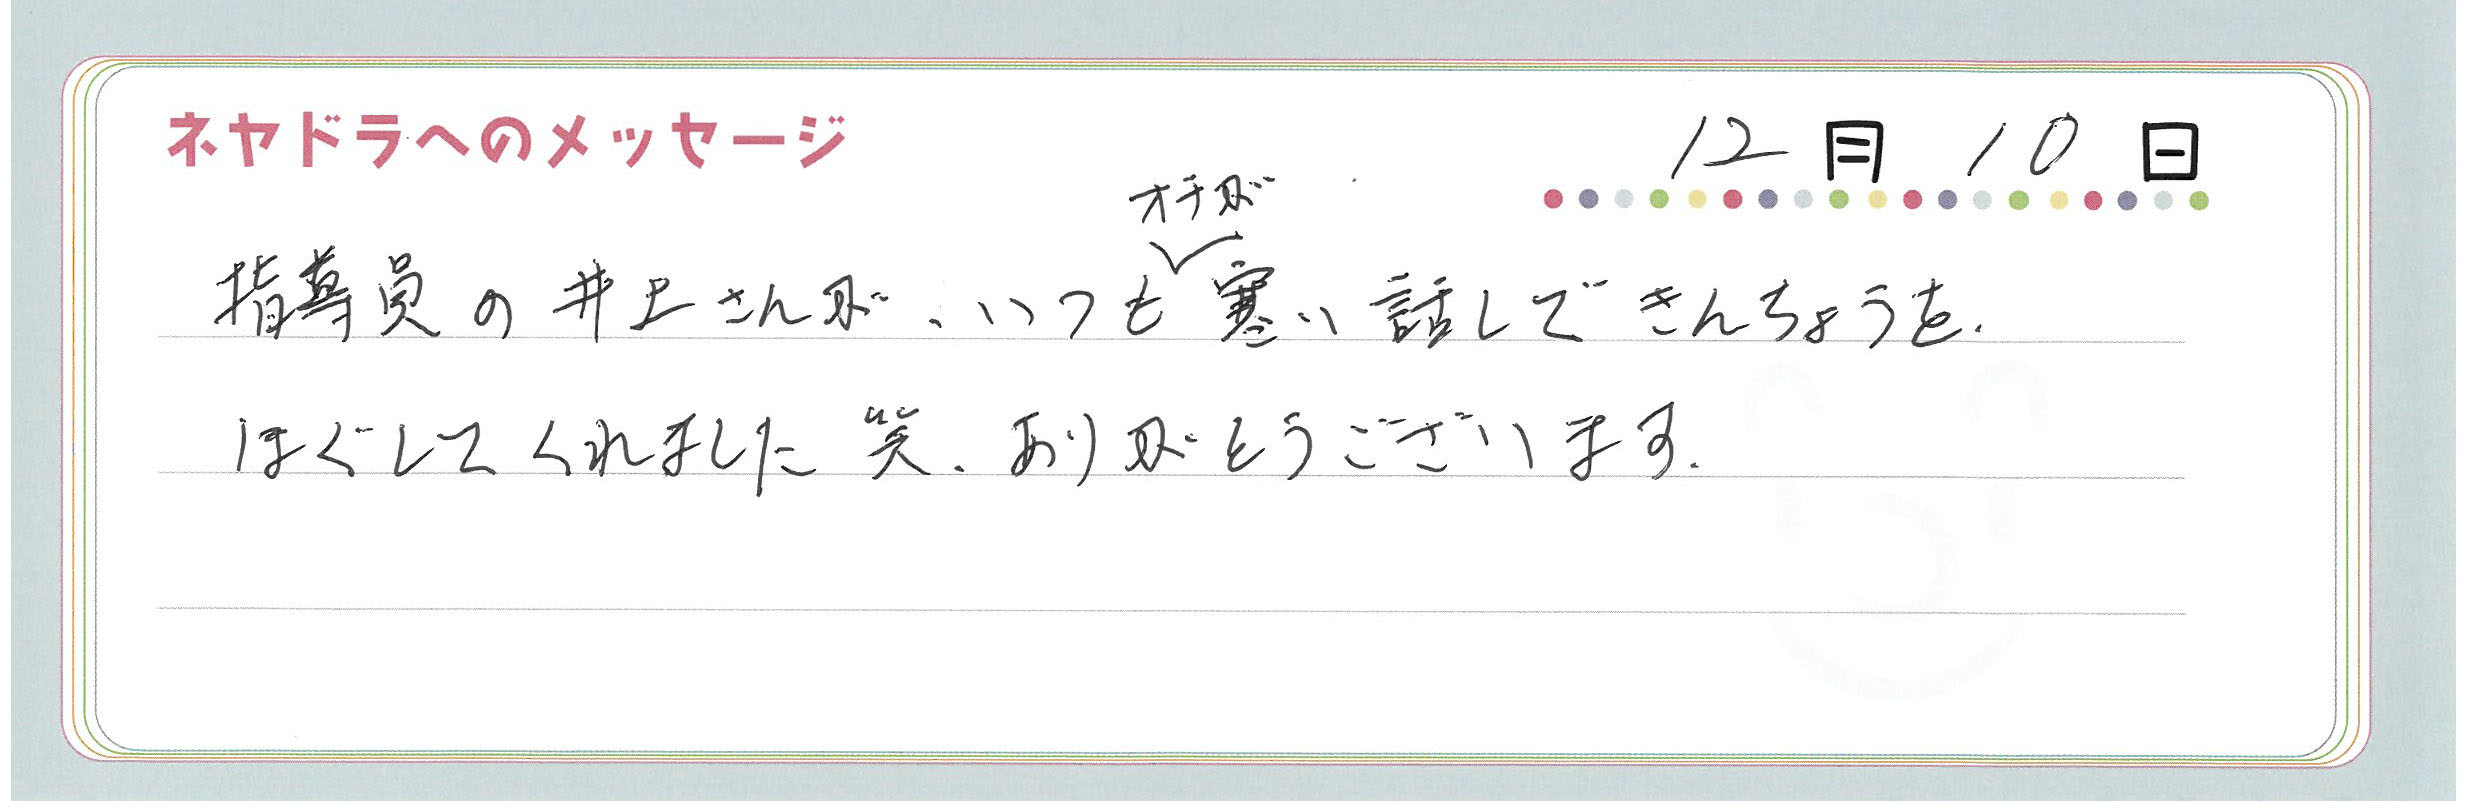 ネヤドラへのメッセージ
12月10日
オチが
指導員の井上さんが、いつも寒い話しできんちょうを、
ほぐしてくれました笑、ありがとうございます.